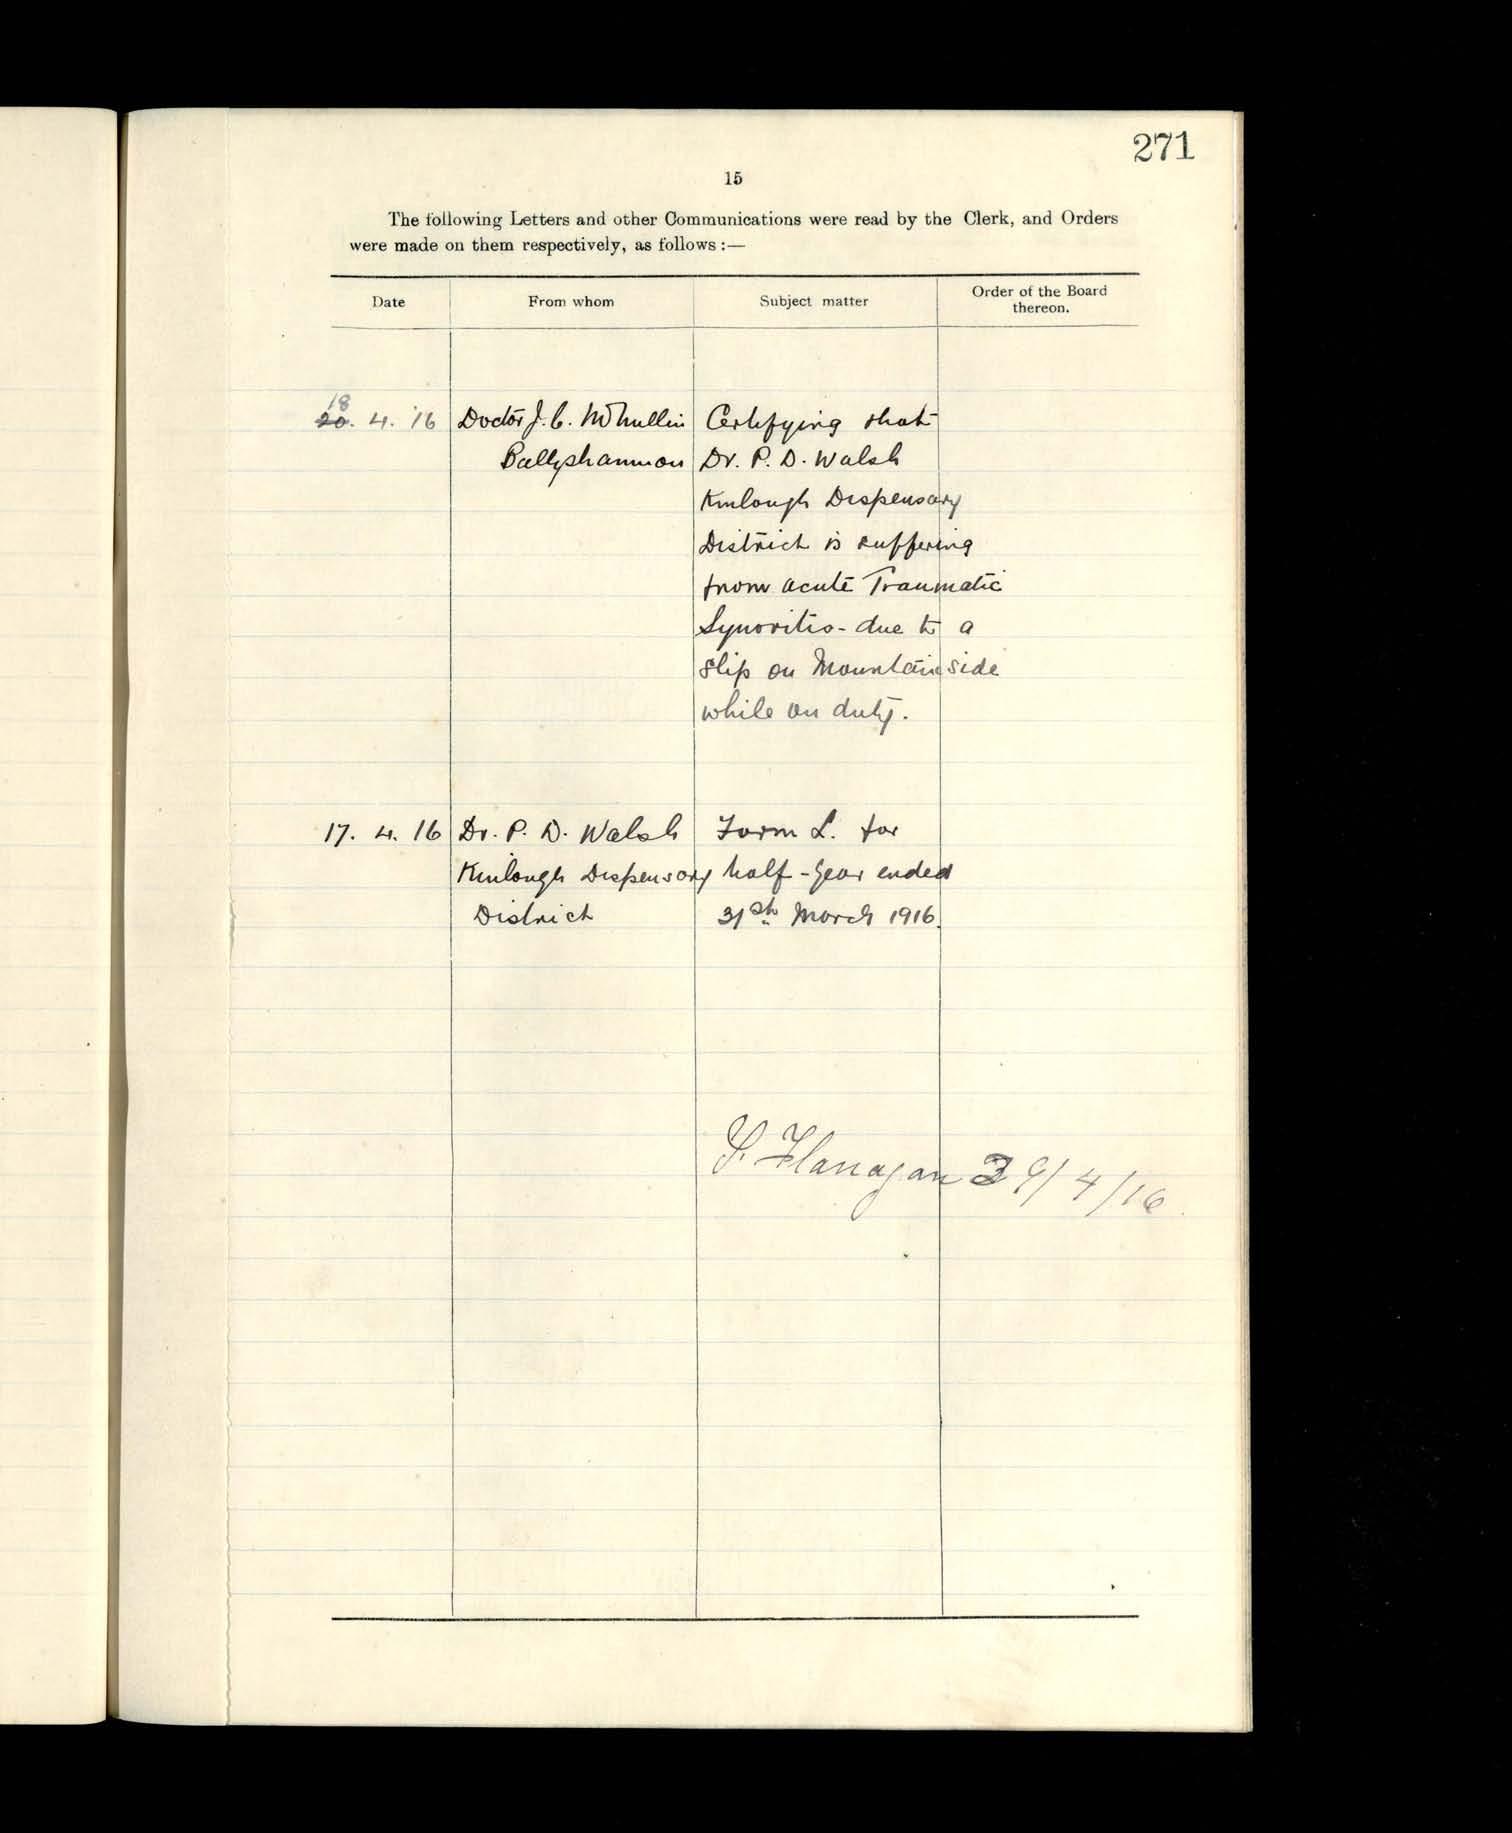 271
15
The following Letters and other Communications were read by the Clerk, and Orders
were made on them respectively, as follows :—
Date From whom Subject matter Order of the Board thereon.
18
20. 4. '16 Doctor J. C. McMullin Certifying that
Ballyshannon Dr. P. D. Walsh
Kinlough Dispensary
District is suffering
from acute Traumatic
Synovitis - due to a
slip on Mountain side
while on duty.
17. 4. 16 Dr. P. D. Walsh Form L. for
Kinlough Dispensary half-year ended
District 31st March 1916.
F. Flanagan 29/4/16.